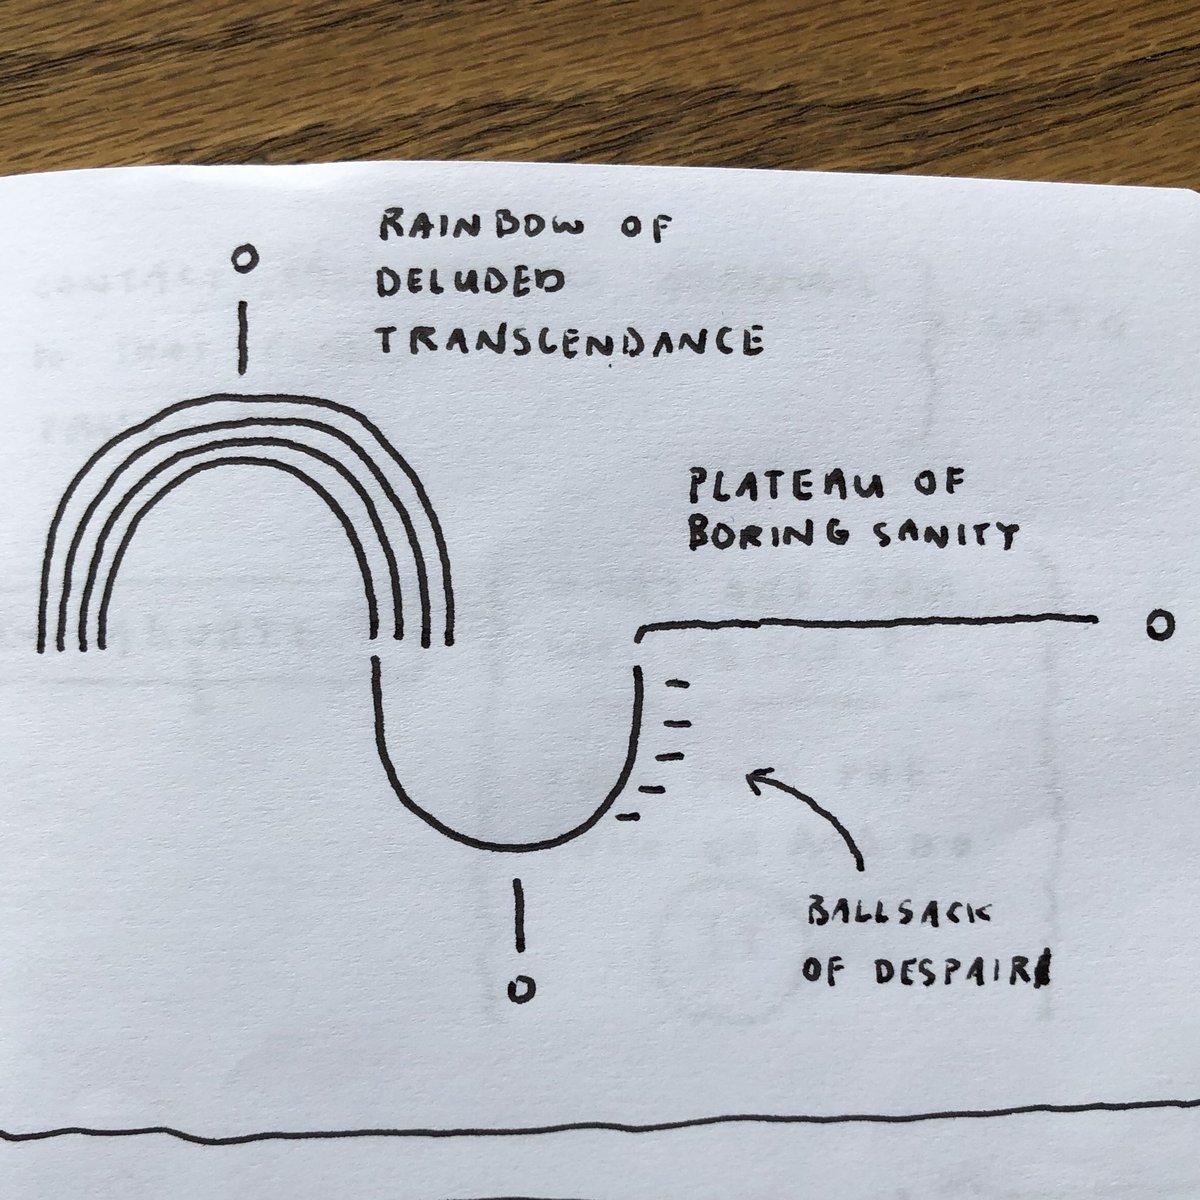 RAINBOW OF
DELUDED
TRANSCENDANCE
PLATEAU OF
BORING SANITY
BALLSACK
OF DESPAIR